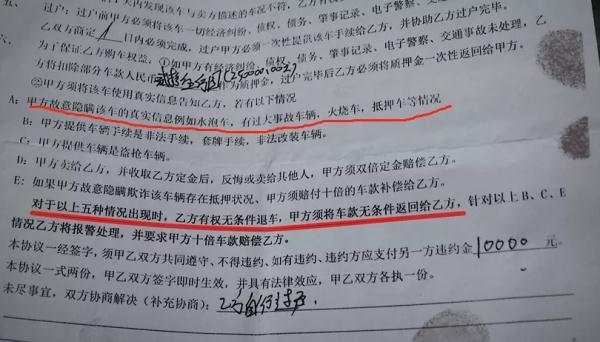 天内发现该车与卖方描述的车况不符，乙方有权
过户：过户前甲方必须将该车一切经济纠纷、债权、债务、肇事记录、电子警察、交通
乙双方商定 1 日内必须完成，过户甲方必须一次性提供该车手续给乙方，并协助乙方过户完毕。
为了保证乙方购车权益，①如甲方有经济纠纷、债权、债务、肇事记录、电子警察、交通事故未处理，乙
方将扣除部分车款人民币 作为质押金，过户完毕后乙方必须将质押金一次性返回给甲方。
②甲方须将该车使用真实信息告知乙方，若有以下情况
A：甲方故意隐瞒该车的真实信息例如水泡车，有过大事故车辆，火烧车，抵押车等情况
B：甲方提供车辆手续是非法手续，套牌手续，非法改装车辆。
C：甲方提供车辆是盗抢车辆。
D：甲方卖给乙方，并收取乙方定金后，反悔或卖给其他人，甲方须双倍定金赔偿乙方。
E：如果甲方故意隐瞒欺诈该车辆存在抵押状况、甲方须赔付十倍的车款补偿给乙方。
对于以上五种情况出现时，乙方有权无条件退车，甲方须将车款无条件返回给乙方，针对以上 B、C、E
情况乙方将报警处理，并要求甲方十倍车款赔偿乙方。
本协议一经签字，须甲乙双方共同遵守、不得违约、如有违约、违约方应支付另一方违约金 10000 元。
本协议一式两份，甲乙双方签字即时生效，并具有法律效应，甲乙双方各执一份。
未尽事宜，双方协商解决（补充协商）：乙方自行过户.